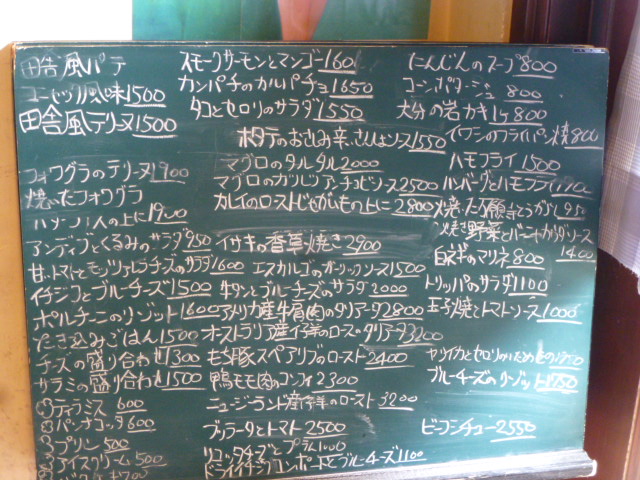 田舎風パテ
コニャック風味1500
田舎風テリーヌ1500
フォワグラのテリーヌ1900
焼いたフォワグラ
ハンバーグの上に1900
アンディブとくるみのサラダ950
甘いトマトとモッツァレラチーズのサラダ1600
イチジクとブルーチーズ1500
ポルチーニのリゾット1600
たき込みごはん1500
チーズの盛り合わせ1300
サラミの盛り合わせ1500
ティラミス 600
パンナコッタ600
プリン500
アイスクリーム500
スモークサーモンとマンゴー1600
カンパチのカルパチョ1650
タコとセロリのサラダ1550
ホタテのおさしみ
ソース1550
マグロのタルタル2000
マグロのガリシアンチョビソース2500
カレイのローストじゃがいもの上に2800
イサキの香草焼き2900
エスカルゴのガーリックソース1500
牛タンとブルーチーズのサラダ2000
アメリカ産牛肩肉のタリアータ2800
オーストラリア産仔羊のロースのタリアータ3200
もち豚スペアリブのロースト2400
鴨もも肉のコンフィ2300
ニュージーランド産仔羊のロースト3200
ブッラータとトマト2500
リコッタチーズとプラム1000
ドライイチジクコンポートとブルーチーズ1100
にんじんのスープ800
コーンポタージュ 800
大分の岩ガキ1ケ800
イワシのフライパン焼800
ハモフライ1500
ハンバーグとハモフライ
焼いた万願寺とうがらし950
焼野菜とバーニャカウダソース
1400
白ネギのマリネ800
トリッパのサラダ1100
玉子焼とトマトソース1000
ヤリイカとセロリのいため
ブルーチーズのリゾット1750
ビーフシチュー2550